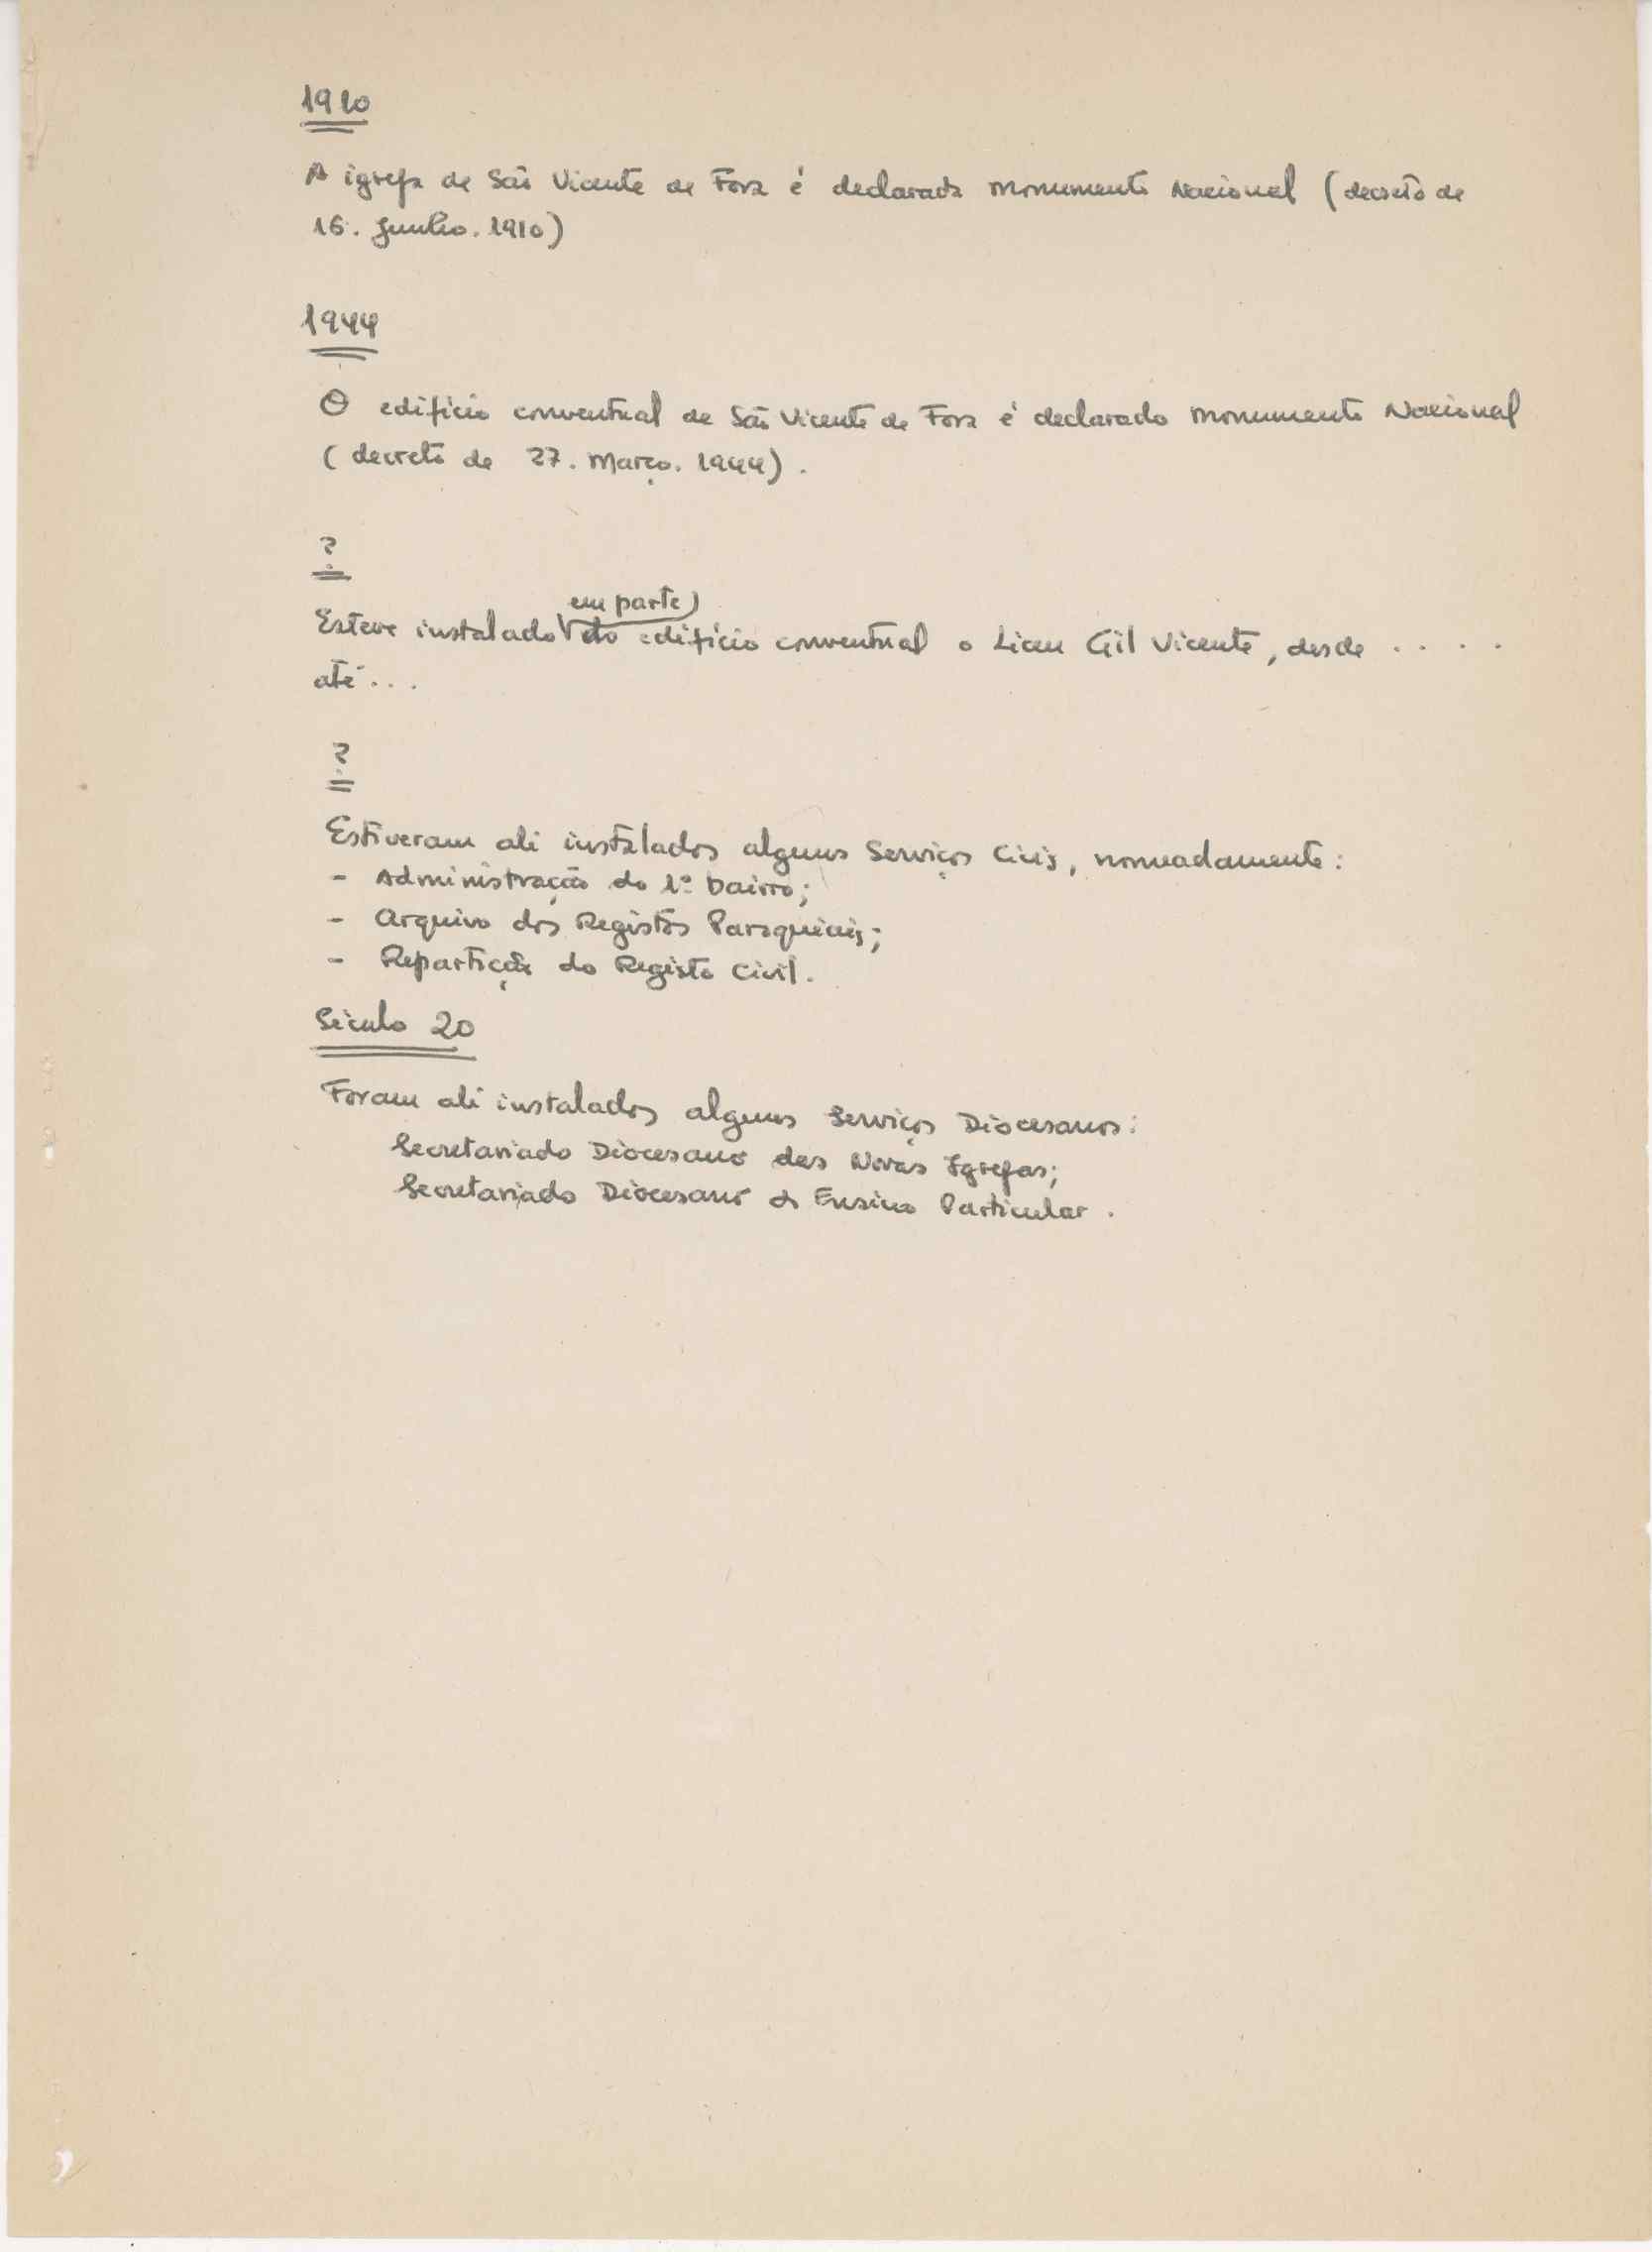 1910
A igreja de São Vicente de Fora é declarada Monumento Nacional (decreto de
16. Junho. 1910)
1944
O edifício conventual de São Vicente de Fora é declarado Monumento Nacional
(decreto de 27. Março. 1944).
?
em parte)
Esteve instalado do edifício conventual o Liceu Gil Vicente, desde . . . .
até . . .
?
Estiveram ali instalados alguns Serviços Civis, nomeadamente:
- Administração do 1º bairro;
- Arquivo dos Registos Paroquiais;
- Repartição do Registo Civil.
Século 20
Foram ali instalados alguns Serviços Diocesanos:
Secretariado Diocesano das Novas Igrejas;
Secretariado Diocesano do Ensino Particular.